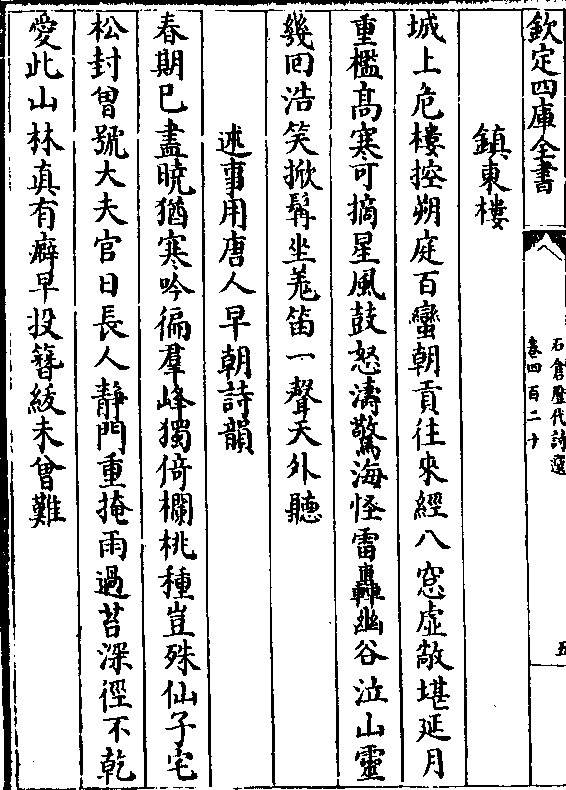 欽定四庫全書
石倉歷代詩選
卷四百二十
五
鎮東樓
城上危樓控朔庭百蠻朝貢往來經八窓虛敞堪延月
重檻髙寒可摘星風鼓怒濤驚海怪雷轟幽谷泣山靈
幾囘浩笑掀髯坐羌笛一聲天外聽
述事用唐人早朝詩韻
春期已盡曉猶寒吟徧羣峰獨倚欄桃種豈殊仙子宅
松封曽號大夫官日長人靜門重掩雨過苔深徑不乾
愛此山林真有癖早投簪紱未曾難